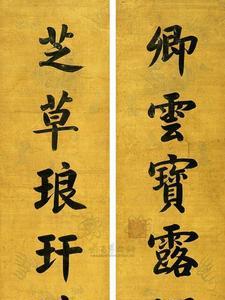 卿雲寶露
芝草琅玕